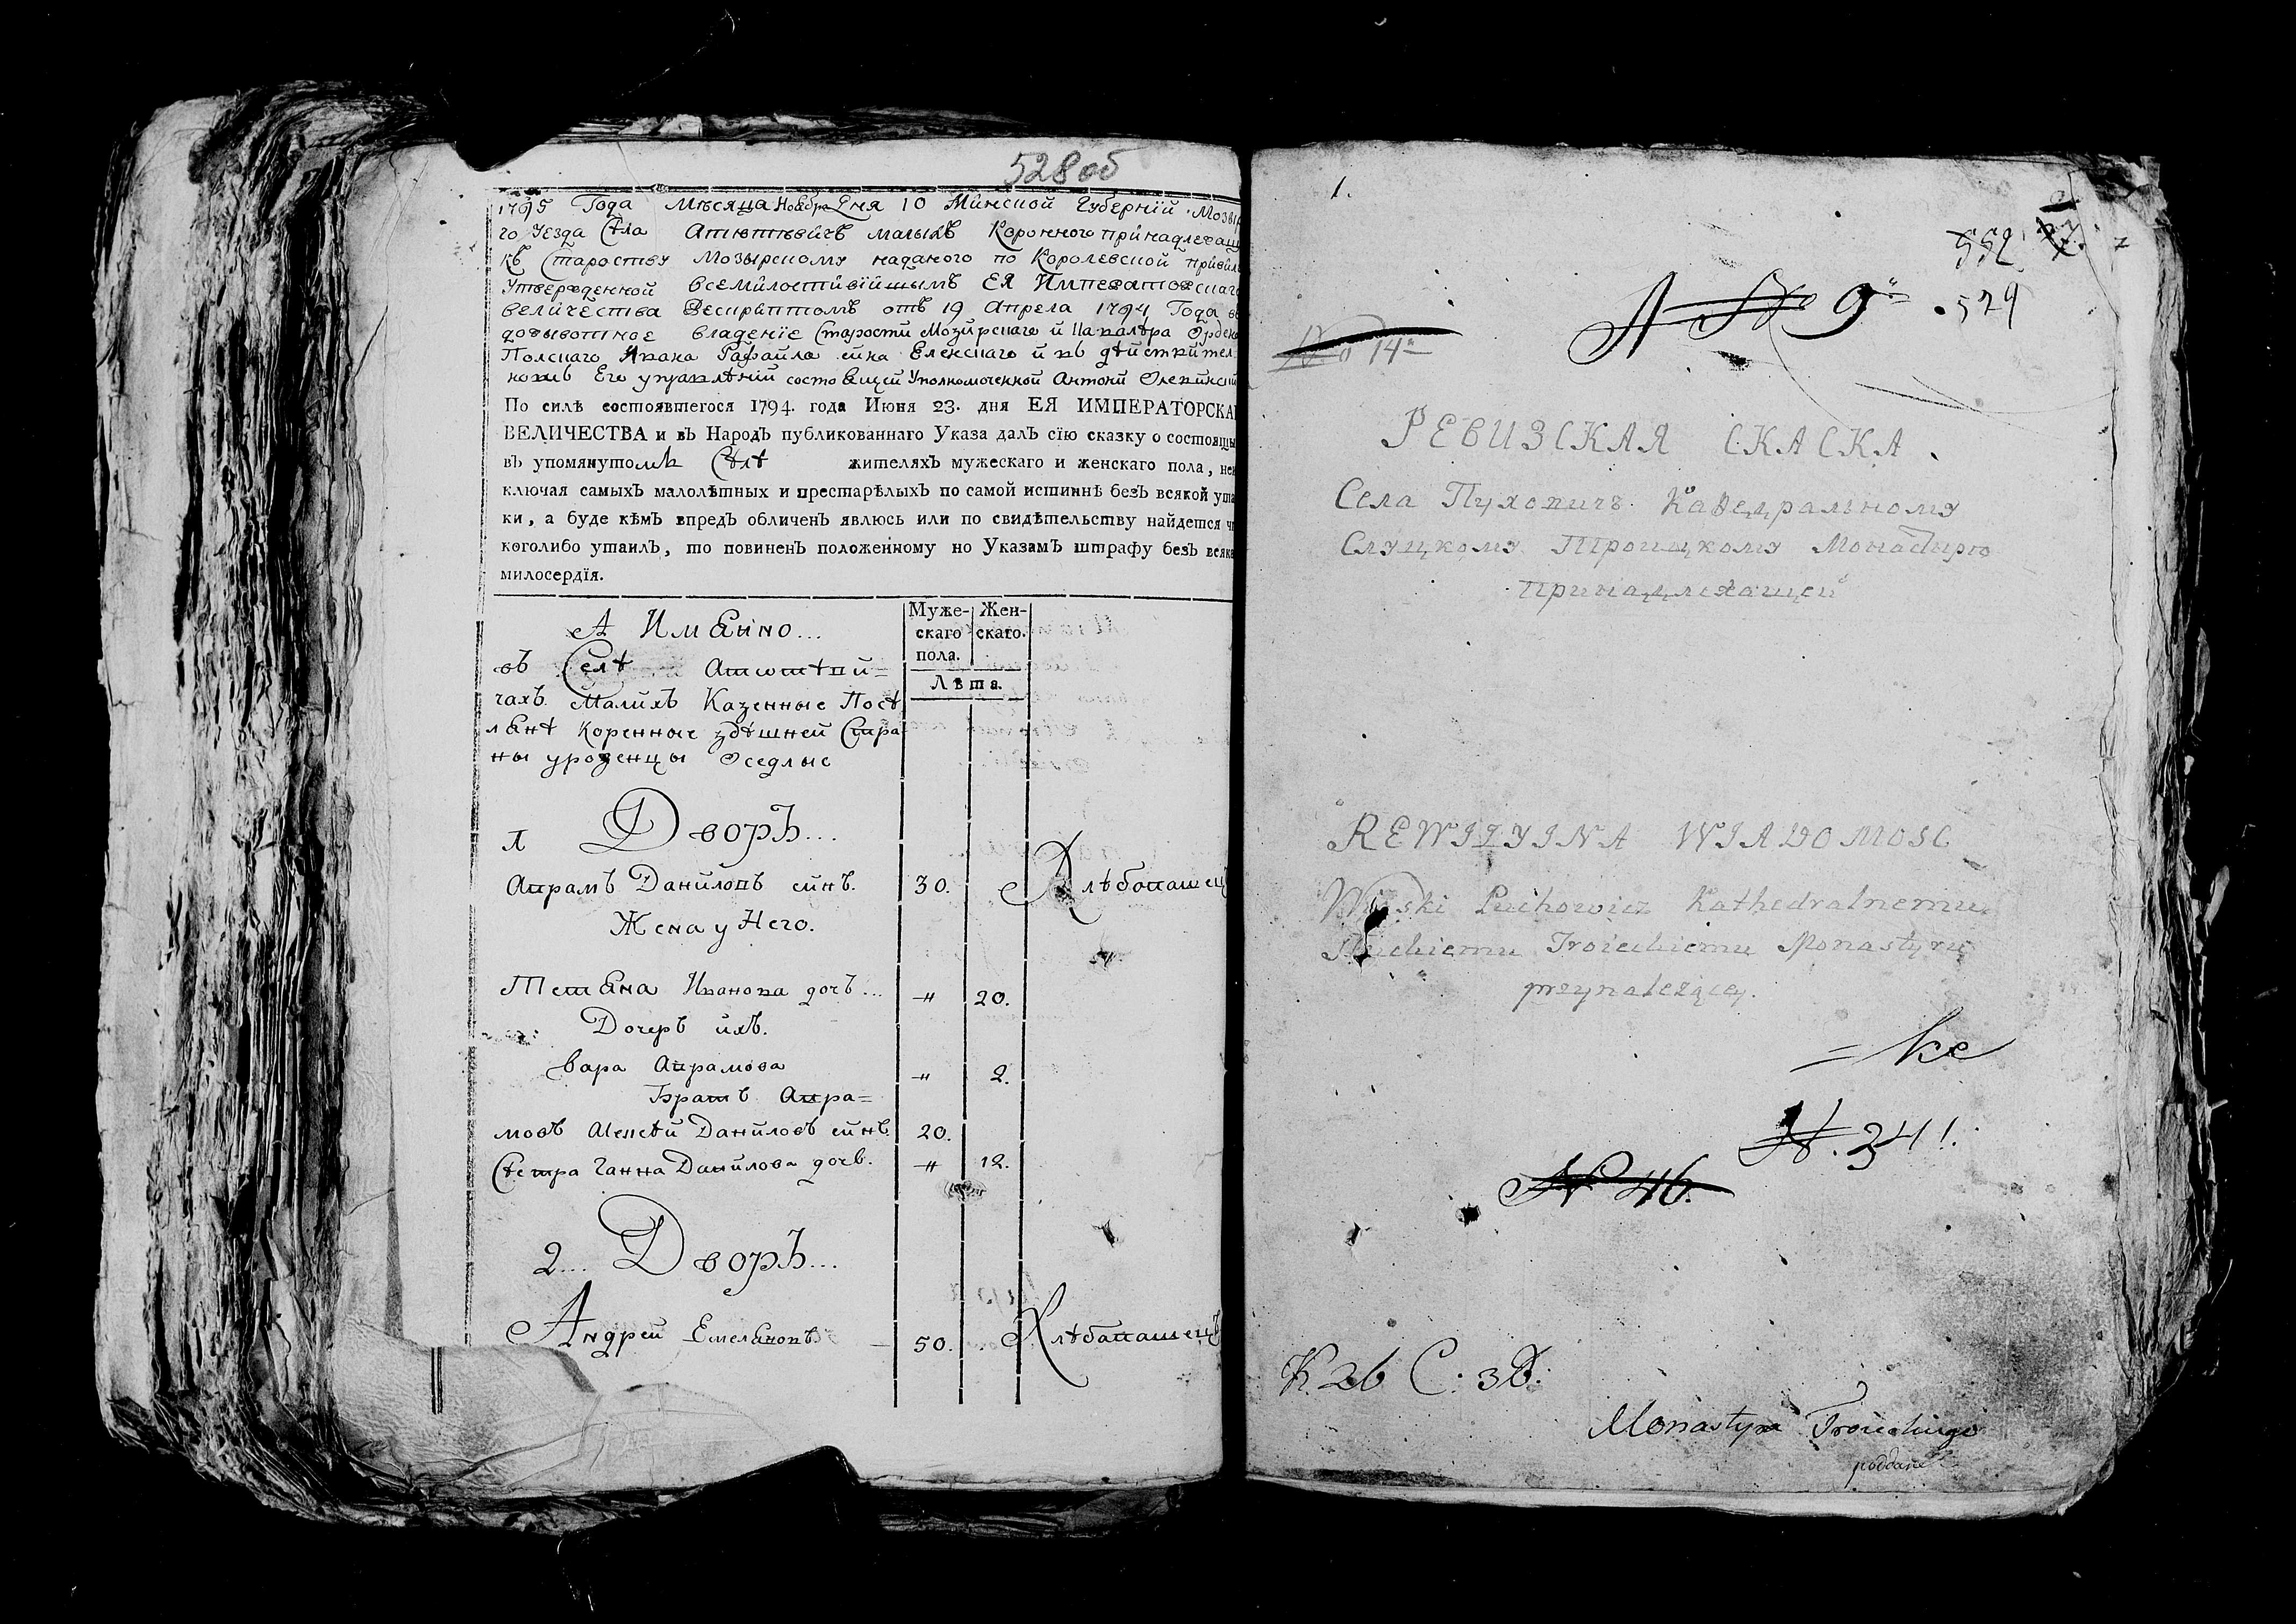 528об
1795 Года Мѣсяца Ноября Дня 10 Минской Губерніи Мозыр
го Уезда Села Атютѣвичъ малыхъ Коронного принадлежащ
къ Староству Мозырскому наданого по Королевской привил
Утвержденной всемилостивійшымъ ЕЯ Императорскаго
величества Рескриптомъ отъ 19 Апрела 1794 Года въ
дожывотное владеніе Старости Мозирскаго и Кавалѣра Ордена
Полскаго Ивана Рафаила сина Еленскаго и въ дѣйствител
номъ Его управлѣній состоящей Уполномоченной Антоній
По силѣ состоявшегося 1794. года Июня 23. дня ЕЯ ИМПЕРАТОРСКА
ВЕЛИЧЕСТВА и въ Народъ публикованнаго Указа далъ сію сказку о состоящы
въ упомянутомъ Селѣ жителяхъ мужескаго и женскаго пола, неи
ключая самыхъ малолѣтныхъ и престарѣлыхъ по самой истиннѣ безъ всякой ута
ки, а буде кѣмъ впредъ обличенъ явлюсь или по свидѣтельству найдется чт
коголибо утаилъ, то повиненъ положенному по Указамъ штрафу безъ всяка
милосердія.
А Имѣнно...
Муже- Жен-
скаго скаго.
пола.
Лѣта.
въ Селѣ Атютѣви=
чахъ Малихъ Казенные Посѣ
лѣнѣ Коренные здѣшней Стра
ны уроженцы Оседлые
1 Дворъ...
Аврамъ Даниловъ синъ. 30. Хлѣбопашецъ
Жена у Него.
Тетѣна Иванова дочъ... -"- 20.
Дочеръ ихъ.
Вара Аврамова -"- 2.
Братъ Авра=
мовъ Алексѣй Даниловъ синъ. 20.
Сѣстра Ганна Данилова дочъ. -"- 12.
2... Дворъ...
Андрей Емелѣновъ 50. Хлѣбапашецъ
1.
552
N 9 529
No 14
РЕВИЗСКАЯ СКАСКА.
Села Пуховичъ Каѳедральному
Слуцкому Троицкому Монастырю
Принадлежащей
REWIZYINA WIADOMOSC
Wioski Puchowicz Kathedralnemu
Sluckiemu Troickiemu Monastyru
przynalezący.
N. 341.
N 46.
K 26 C. 3
Monastyra Troickiego
poddane